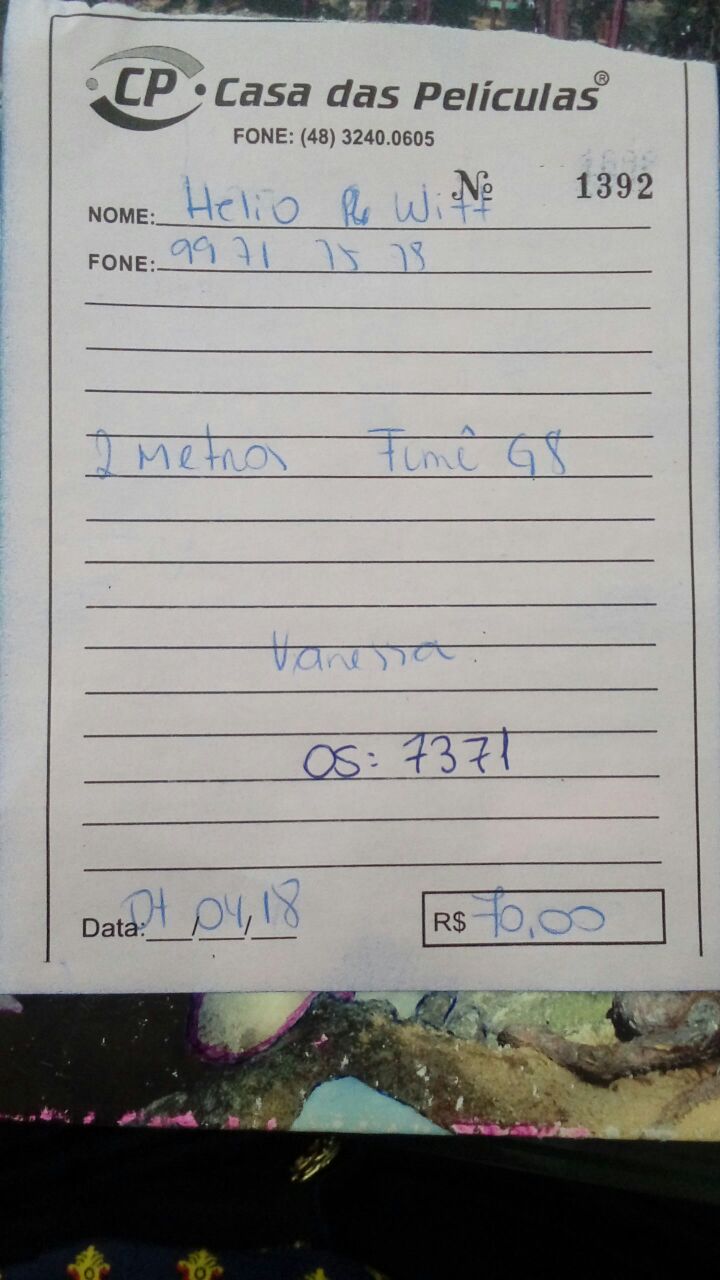 CP Casa das Películas®
FONE: (48) 3240.0605
Nº 1392
NOME: Helio Witt
FONE: 9971
2 Metros Fumê G8
Vanessa
OS: 7371
Data: 04/18
R$ 70,00